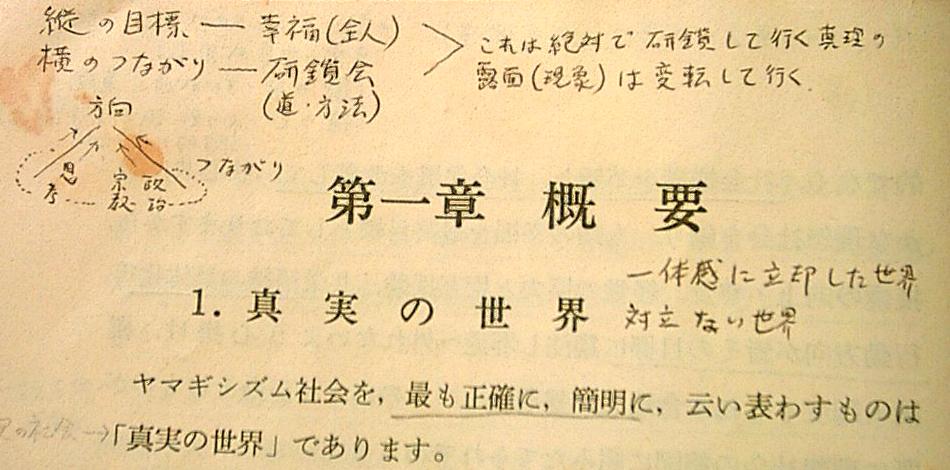 縦の目標 — 幸福(全人)
横のつながり — 研鑽会
(道・方法)
これは絶対で研鑽して行く真理の
露面(現象)は変転して行く
方向
思考
宗教
政治
つながり
第一章 概要
1. 真実の世界
一体感に立印した世界
対立ない世界
ヤマギシズム社会を,最も正確に,簡明に,云い表わすものは
「真実の世界」であります。